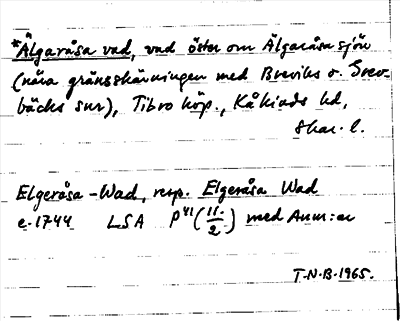 *Älgaråsa vad, vad öster om Älgaråsasjön
(nära gränsskärningen med Breviks o. Grev-
bäcks snr), Tibro köp., Kåkinds hd,
Skar. l.
Elgeråsa-Wad, resp. Elgeråsa Wad
e. 1744 LSA P41 (11/2) med Anm:ar
T.N.B. 1965.